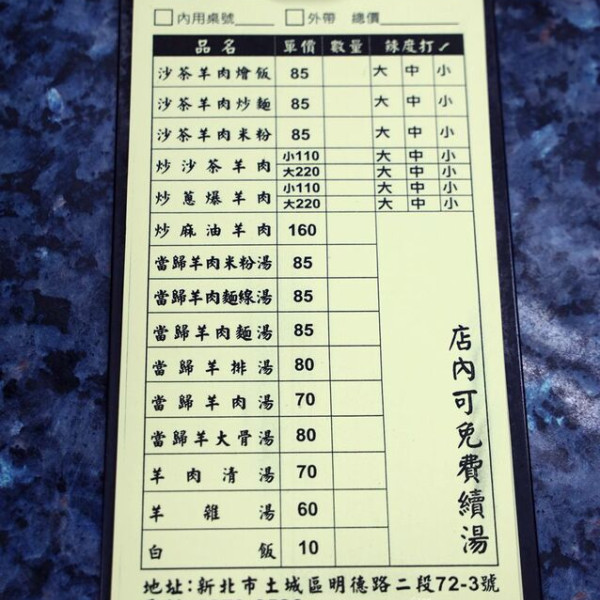 □內用桌號 □外帶 總價
品名 單價 數量 辣度打✓
沙茶羊肉燴飯 85 大 中 小
沙茶羊肉炒麵 85 大 中 小
沙茶羊肉米粉 85 大 中 小
炒沙茶羊肉 小110 大 中 小
大220 大 中 小
炒蔥爆羊肉 小110 大 中 小
大220 大 中 小
炒麻油羊肉 160
當歸羊肉米粉湯 85
當歸羊肉麵線湯 85
當歸羊肉麵湯 85
當歸羊排湯 80
當歸羊肉湯 70
當歸羊大骨湯 80
羊肉清湯 70
羊雜湯 60
白飯 10
店內可免費續湯
地址:新北市土城區明德路二段72-3號